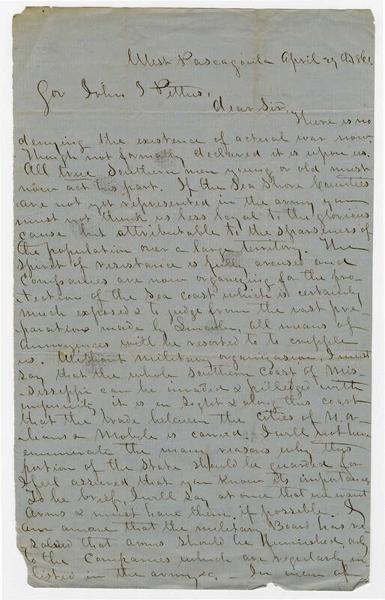 West Pascagoula April 29 1861
Gov John J Pettus,
dear Sir,
There is no
denying the existence of actual war now.
Though not formally declared it is upon us.
All true Southern men young or old must
now act his part. If the Sea Shore Counties
are not yet represented in the army you
must not think us less loyal to the glorious
cause but attributable to the sparseness of
the population over a large territory. The
spirit of resistance is fully aroused and
Companies are now organizing for the pro-
tection of the Sea coast which is certainly
much exposed & to judge from the vast pre-
parations made by Lincoln, all means of
annoyances will be resorted to to cripple
us. Without military organization I must
say that the whole Southern Coast of Mis-
sissippi can be invaded & pillaged with
impunity it is in sight & along this coast
that the trade between the Cities of N Or-
leans & Mobile is carried. I will not here
enumerate the many reasons why this
portion of the State should be guarded for
I feel assured that you know its importance
To be brief, I will say at once that we want
Arms & must have them if possible. I
am aware that the military Board has re-
solved that arms should be furnished only
to the Companies which are regularly en-
listed in the army &c - In view of